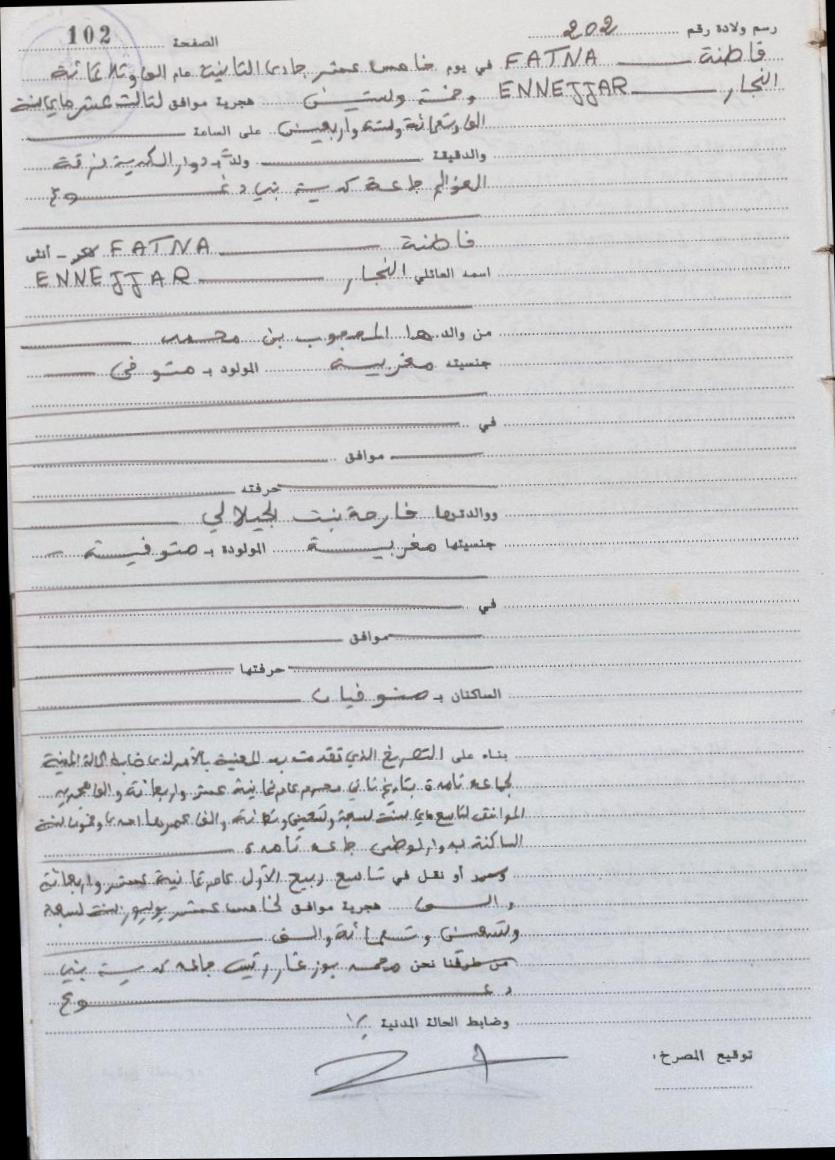 رسم ولادة رقم 202 الصفحة 102
فاطنة FATNA في يوم خامس عشر جمادى الثانية عام الف وثلاثمائة
النجار ENNEJJAR وخمسة وستين هجرية موافق لثالث عشر ماي سنة
الف وتسعمائة وستة واربعين على الساعة
والدقيقة ولدت بدوار الكدية فرقة
العوالم جماعة كدية بني دغوغ
فاطنة FATNA ذكر - أنثى
اسمه العائلي النجار ENNEJJAR
من والدها المحجوب بن محمد
جنسيته مغربية المولود بـ متوفى
في
موافق
حرفته
ووالدتها خارجة بنت الجيلالي
جنسيتها مغربية المولودة بـ متوفية
في
موافق
حرفتها
الساكنان بـ متوفيان
بناء على التصريح الذي تقدمت به المعنية بالأمر لدى ضابط الحالة المدنية
لجماعة تامدة بتاريخ ثاني محرم عام ثمانية عشر واربعمائة والف هجرية
الموافق لتاسع ماي سنة سبعة وتسعين وتسعمائة والف عمرها احدى وخمسون سنة
الساكنة بدوار لوطى جماعة تامدة
وحرر أو نقل في تاسع ربيع الأول عام ثمانية عشر واربعمائة
والف هجرية موافق لخامس عشر يوليوز سنة سبعة
وتسعين وتسعمائة والف
من طرفنا نحن محمد بوزغار رئيس جماعة كدية بني
دغوغ
وضابط الحالة المدنية بها
توقيع المصرح،